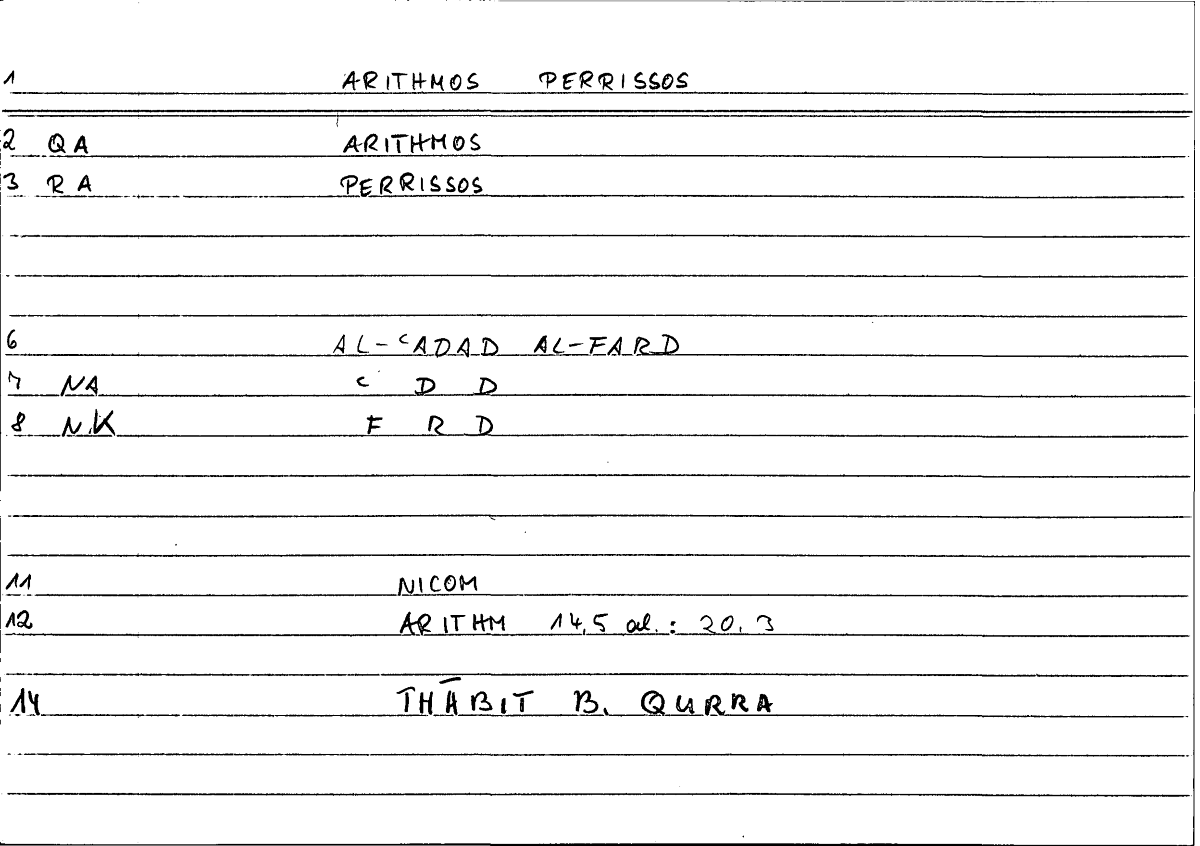 1 ARITHMOS PERRISSOS
2 QA ARITHMOS
3 RA PERRISSOS
6 AL-ʿADAD AL-FARD
7 NA ʿ D D
8 NK F R D
11 NICOM
12 ARITHM 14,5 al. : 20,3
14 THĀBIT B. QURRA